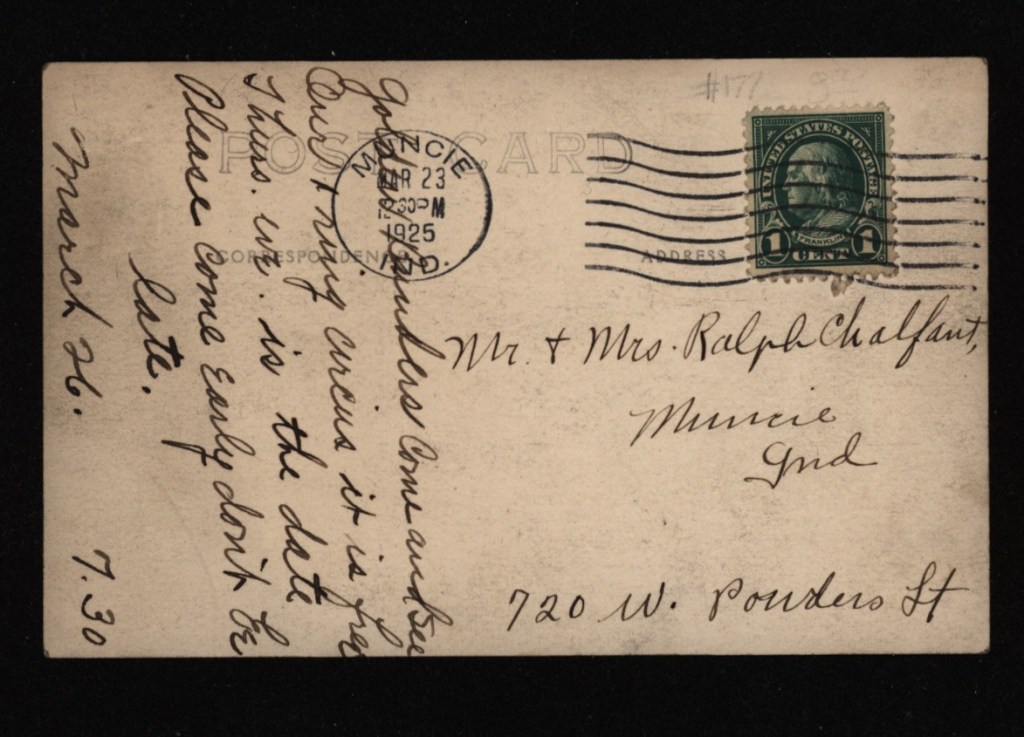 #171
POST CARD
MUNCIE
MAR 23
12:30PM
1925
IND.
UNITED STATES POSTAGE
FRANKLIN
1 CENT 1
CORRESPONDENCE
ADDRESS
Gold Come and See
Our 1 ring circus it is free
Thurs. eve. is the date
Please come Early don't be
late.
March 26. 7.30
Mr. & Mrs. Ralph Chalfant,
Muncie
Ind
720 W. Powders St